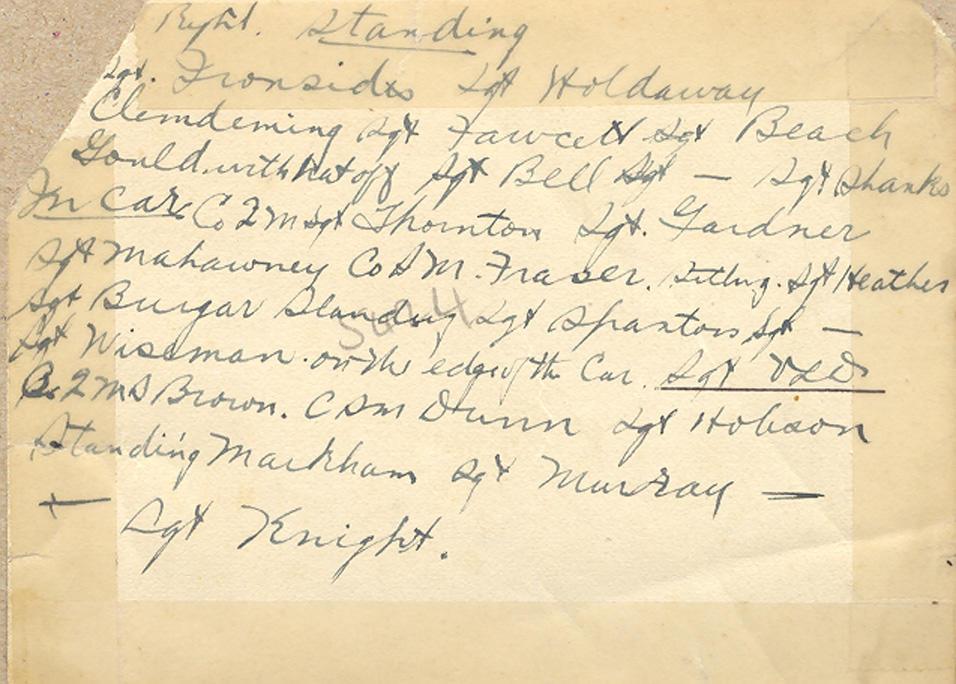 Right. Standing
Sgt. Ironsides Sgt Holdaway
Clemdeming Sgt Fawcett Sgt Beach
Gould. with hat off Sgt Bell Sgt — Sgt Shanks
In Car Co 2 M Sgt Thornton Sgt. Gardner
Sgt Mahawney Co S M. Fraser. Sitting. Sgt Heather
Sgt Burgar Standing Sgt Spanton Sgt —
Sgt Wiseman. on the edge of the Car. Sgt
Co. 2 M S Brown. C S M Dunn Sgt Hobson
Standing Markham Sgt Murray —
— Sgt Knight.